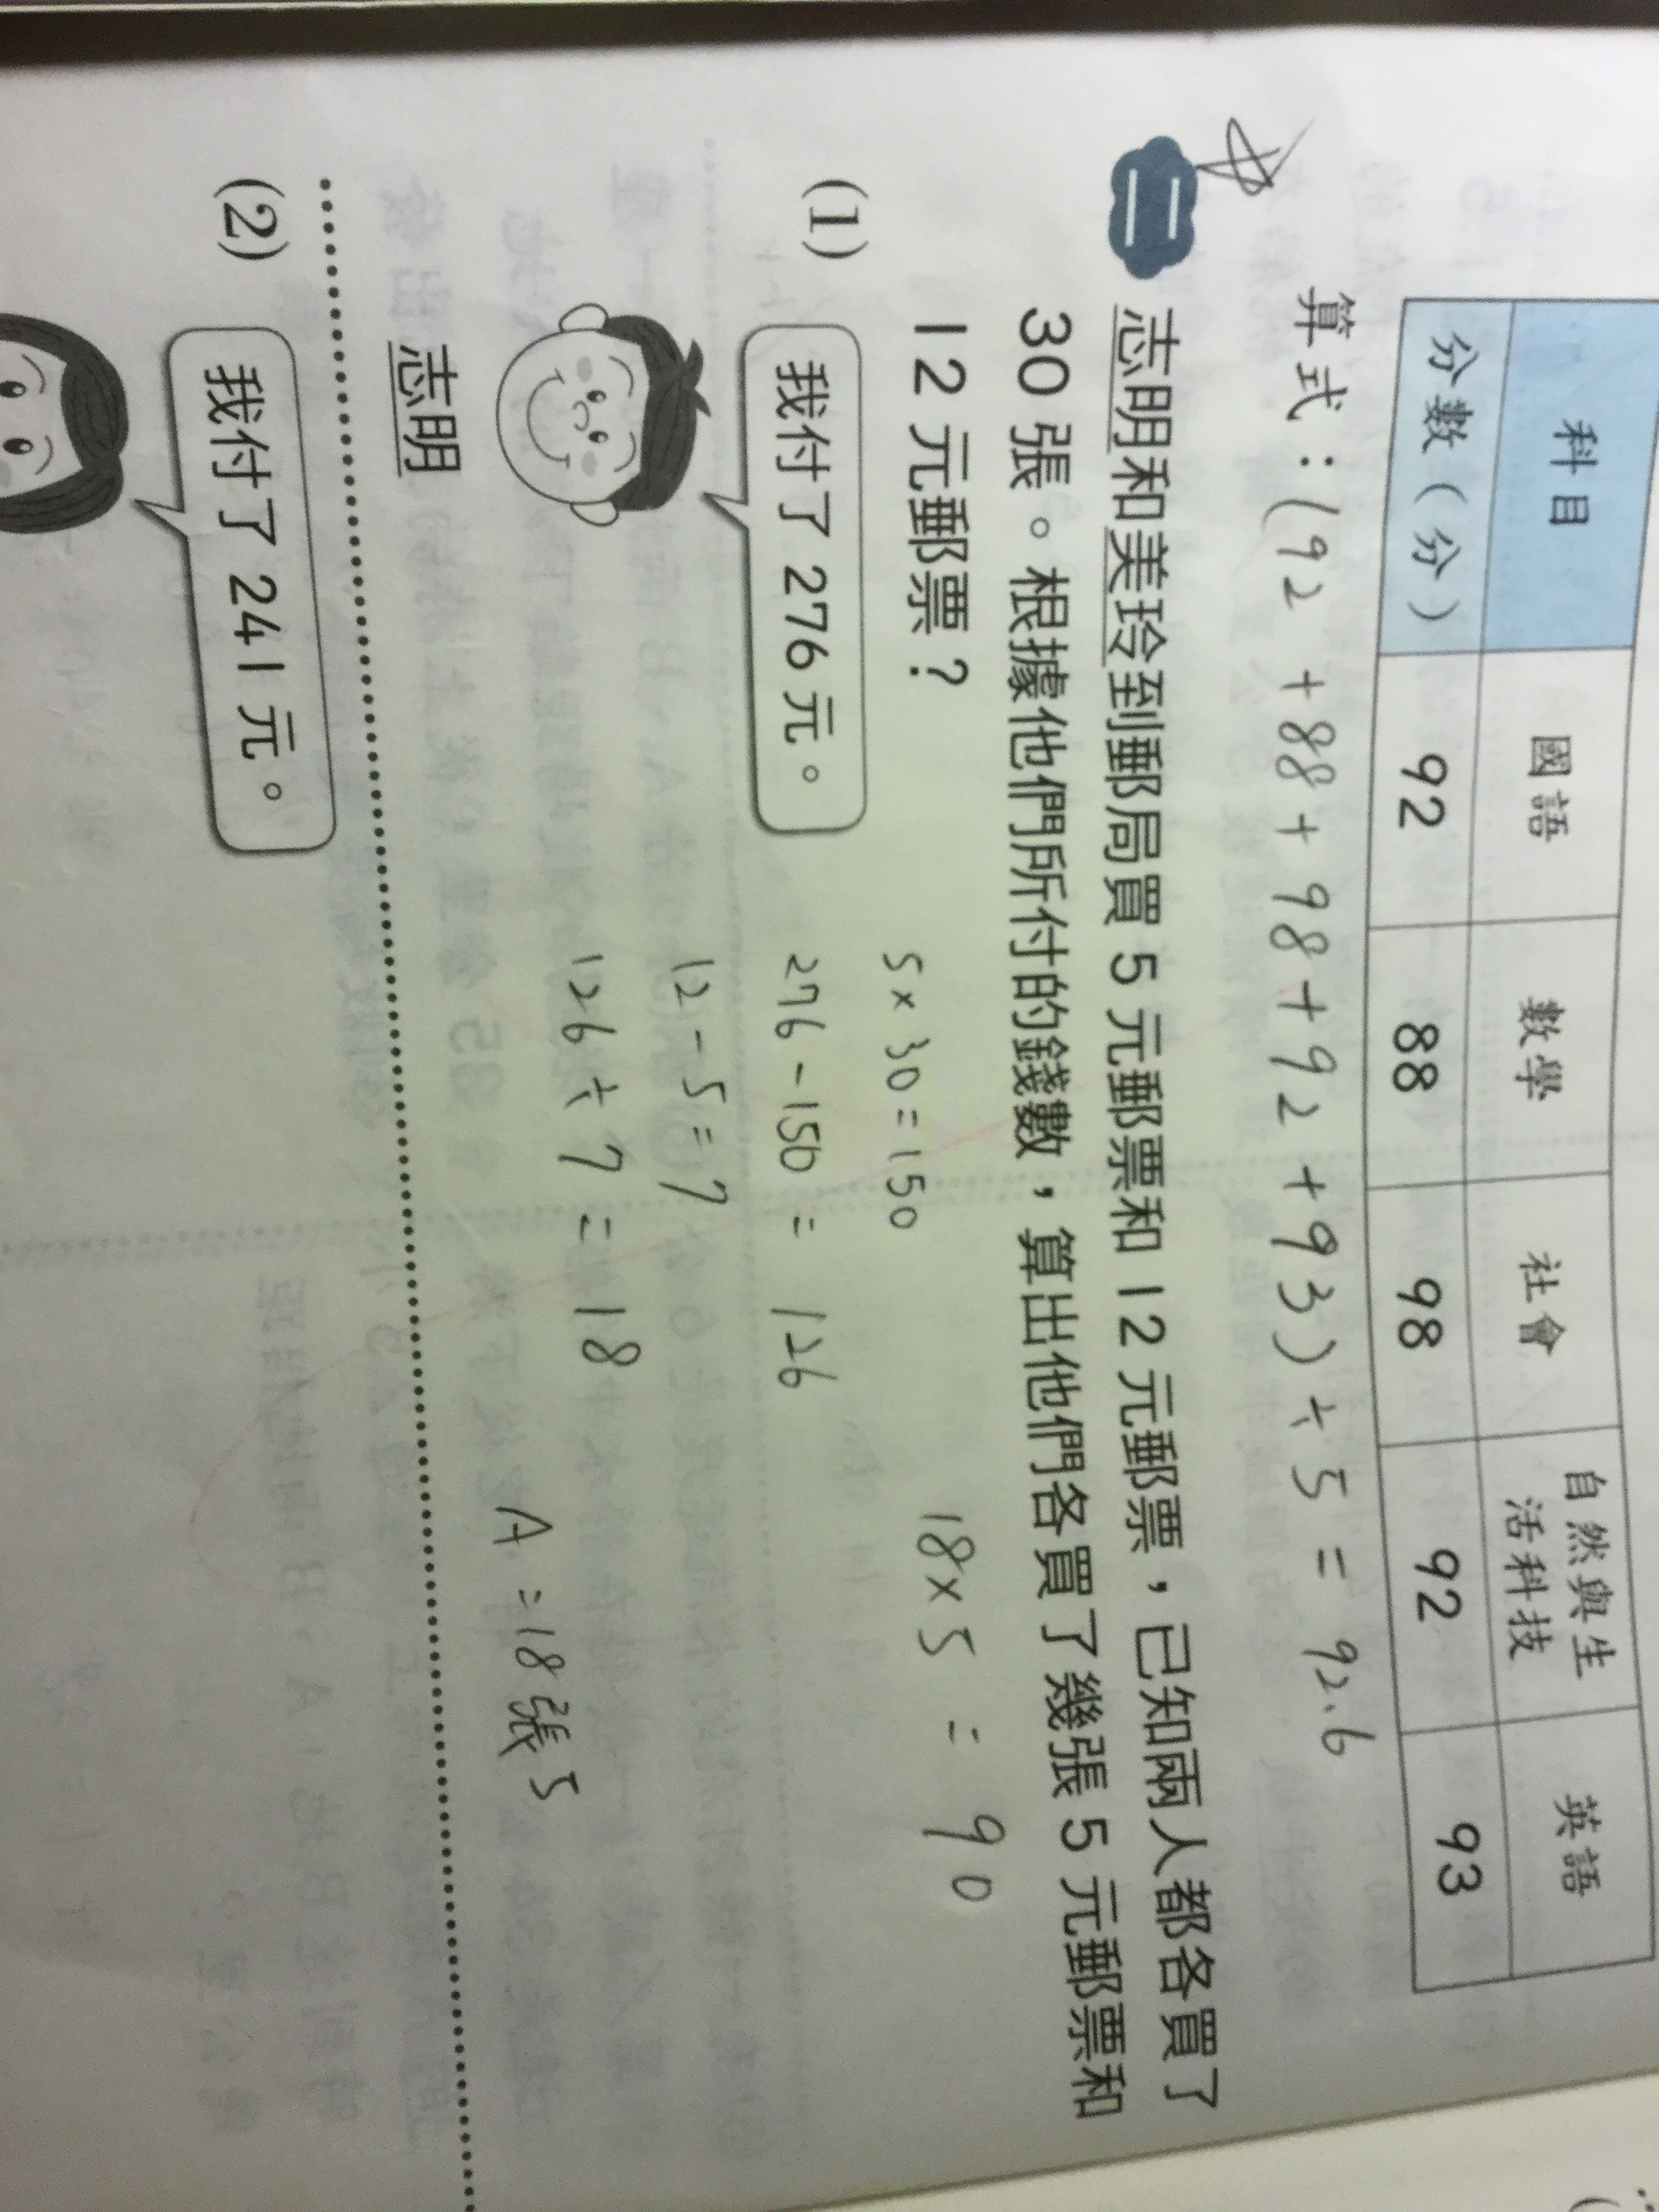 科目 國語 數學 社會 自然與生活科技 英語
分數（分） 92 88 98 92 93
算式：(92+88+98+92+93)÷5=92.6
二 志明和美玲到郵局買5元郵票和12元郵票，已知兩人都各買了
30張。根據他們所付的錢數，算出他們各買了幾張5元郵票和
12元郵票？
18×5=90
(1) 我付了276元。
志明
5×30=150
276-150=126
12-5=7
126÷7=18
A=18張5
(2) 我付了241元。